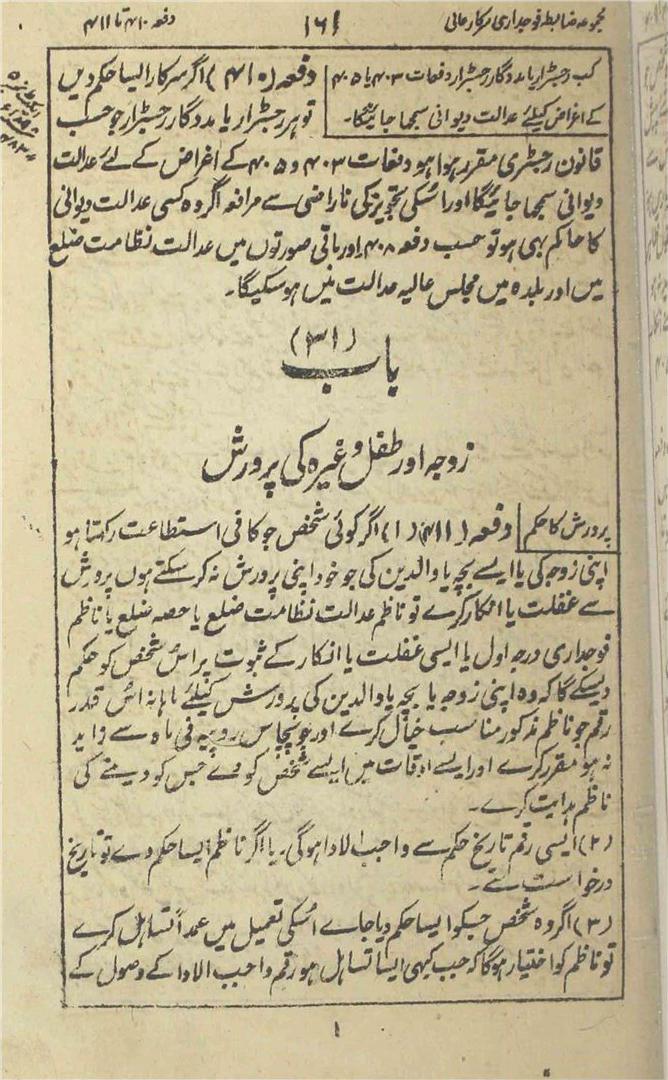 مجموعہ ضابطہ فوجداری سرکار عالی
۱۶۱
دفعہ ۴۱۰ تا ۴۱۱
کب رجسٹرار یا مددگار رجسٹرار دفعات ۴۰۳ یا ۴۰۵
کے اغراض کیلئے عدالت دیوانی سمجھا جائیگا۔
دفعہ (۴۱۰) اگر سرکار ایسا حکم دیں
تو ہر رجسٹرار یا مددگار رجسٹرار جو حسب
قانون رجسٹری مقرر ہوا ہو دفعات ۴۰۳ و ۴۰۵ کے اغراض کے لئے عدالت
دیوانی سمجھا جائیگا اور اسکی تجویز کی ناراضی سے مرافعہ اگر وہ کسی عدالت دیوانی
کا حاکم بھی ہو تو حسب دفعہ ۴۰۸ اور باقی صورتوں میں عدالت نظامت ضلع
میں اور بلدہ میں مجلس عالیہ عدالت میں ہوسکیگا۔
باب (۳۱)
زوجہ اور طفل وغیرہ کی پرورش
پرورش کا حکم
دفعہ (۴۱۱) (۱) اگر کوئی شخص جو کافی استطاعت رکھتا ہو
اپنی زوجہ کی یا ایسے بچہ یا والدین کی جو خود اپنی پرورش نہ کرسکتے ہوں پرورش
سے غفلت یا انکار کرے تو ناظم عدالت نظامت ضلع یا حصہ ضلع یا ناظم
فوجداری درجہ اول یا ایسی غفلت یا انکار کے ثبوت پر اس شخص کو حکم
دیسکے گا کہ وہ اپنی زوجہ یا بچہ یا والدین کی پرورش کیلئے ماہانہ اس قدر
رقم جو ناظم مذکور مناسب خیال کرے اور جو پچاس روپیہ فی ماہ سے زاید
نہ ہو مقرر کرے اور ایسے اوقات میں ایسے شخص کو دے جس کو دینے کی
ناظم ہدایت کرے۔
(۲) ایسی رقم تاریخ حکم سے واجب الادا ہوگی۔ یا اگر ناظم ایسا حکم دے تو تاریخ
درخواست سے۔
(۳) اگر وہ شخص جسکو ایسا حکم دیا جاے اسکی تعمیل میں عمداً تساہل کرے
تو ناظم کو اختیار ہوگا کہ جب کبھی ایسا تساہل ہو رقم واجب الادا کے وصول کے
۱